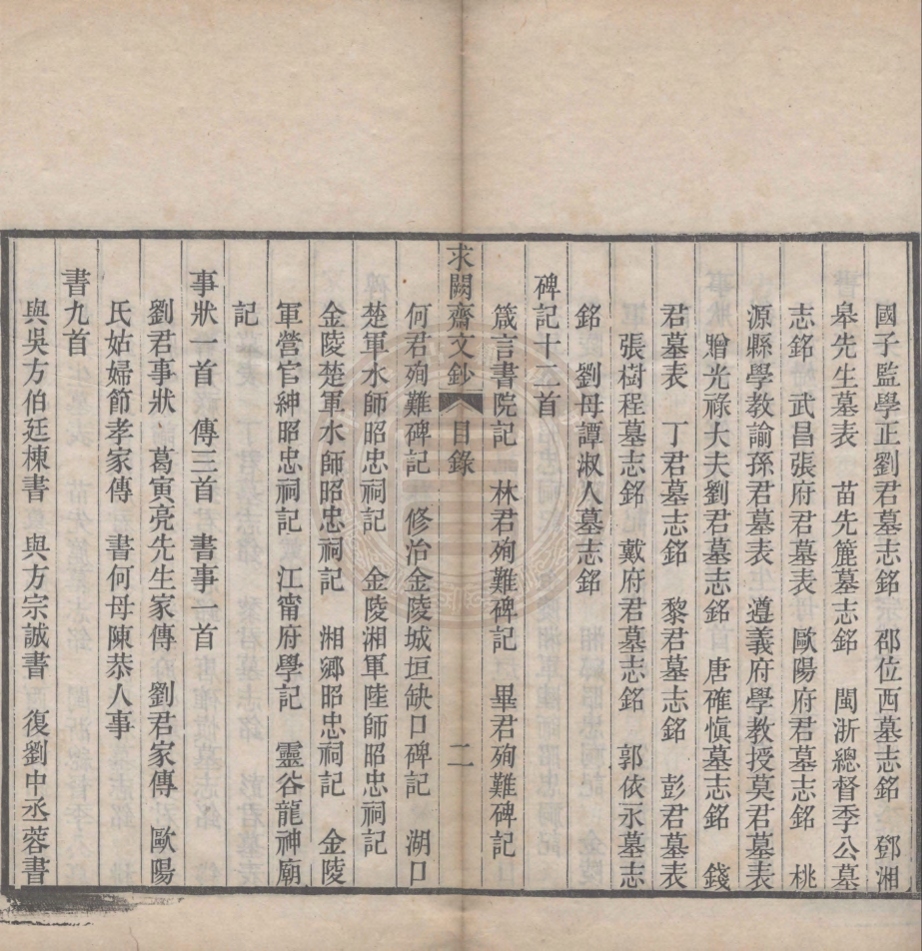 國子監學正劉君墓志銘　邵位西墓志銘　鄧湘
皋先生墓表　苗先簏墓志銘　閩浙總督季公墓
志銘　武昌張府君墓表　歐陽府君墓志銘　桃
源縣學教諭孫君墓表　遵義府學教授莫君墓表
贈光祿大夫劉君墓志銘　唐確慎墓志銘　錢
君墓表　丁君墓志銘　黎君墓志銘　彭君墓表
張樹程墓志銘　戴府君墓志銘　郭依永墓志
銘　劉母譚淑人墓志銘
碑記十二首
箴言書院記　林君殉難碑記　畢君殉難碑記
求闕齋文鈔　目錄　二
何君殉難碑記　修治金陵城垣缺口碑記　湖口
楚軍水師昭忠祠記　金陵湘軍陸師昭忠祠記
金陵楚軍水師昭忠祠記　湘鄉昭忠祠記　金陵
軍營官紳昭忠祠記　江甯府學記　靈谷龍神廟
記
事狀一首　傳三首　書事一首
劉君事狀　葛寅亮先生家傳　劉君家傳　歐陽
氏姑婦節孝家傳　書何母陳恭人事
書九首
與吳方伯廷棟書　與方宗誠書　復劉中丞蓉書